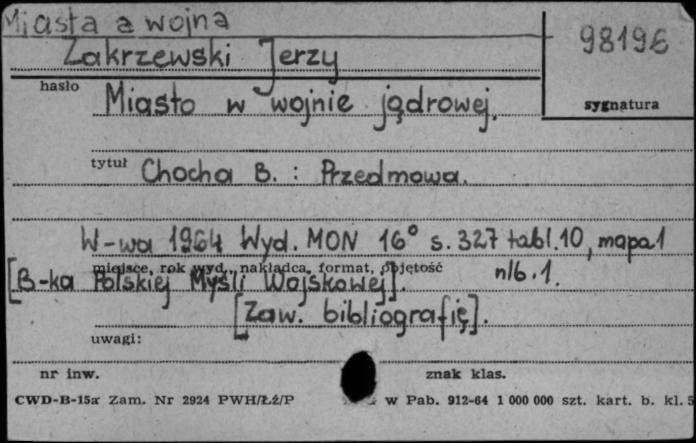 Miasta a wojna
98196
Zakrzewski Jerzy
hasło
Miasto w wojnie jądrowej.
sygnatura
tytuł Chocha B. : Przedmowa.
W-wa 1964 Wyd. MON 16° s. 327 tabl. 10, mapa 1
miejsce, rok wyd., nakładca, format, objętość
nlb. 1.
[B-ka Polskiej Myśli Wojskowej].
[Zaw. bibliografię].
uwagi:
nr inw. znak klas.
CWD-B-15a Zam. Nr 2924 PWH/Łź/P w Pab. 912-64 1 000 000 szt. kart. b. kl. 5